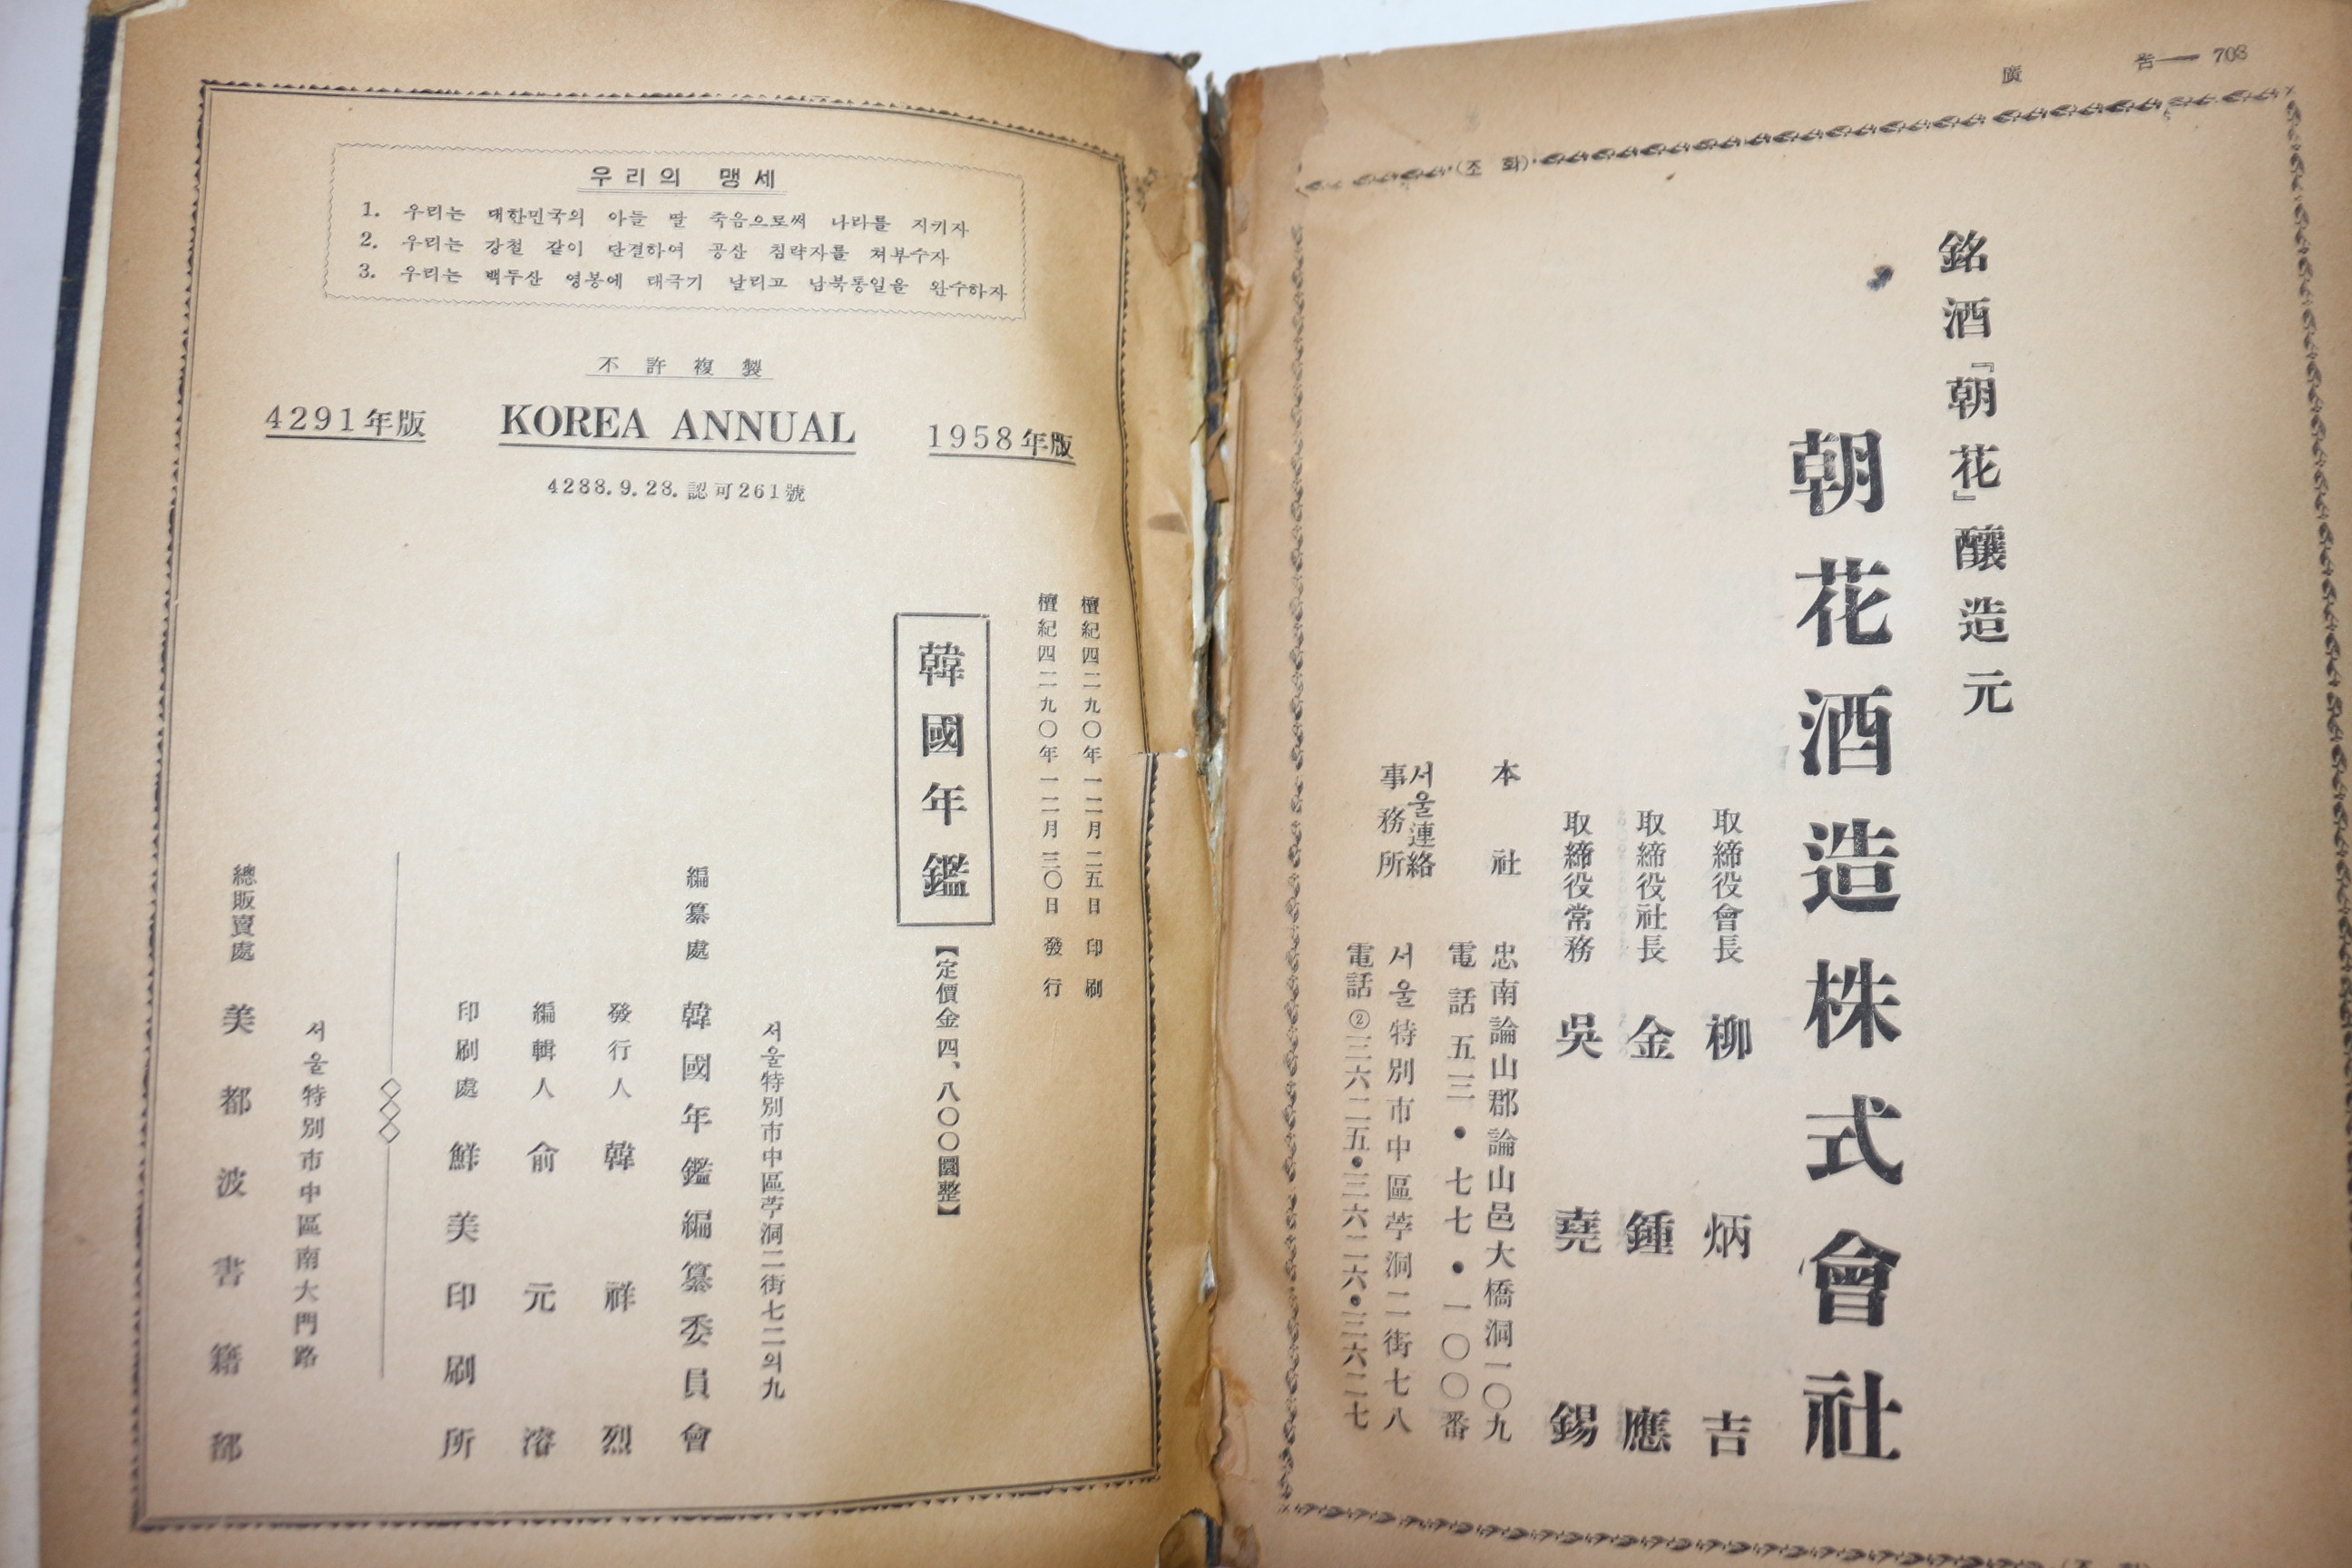 우리의 맹세
1. 우리는 대한민국의 아들 딸 죽음으로써 나라를 지키자
2. 우리는 강철 같이 단결하여 공산 침략자를 쳐부수자
3. 우리는 백두산 영봉에 태극기 날리고 남북통일을 완수하자
不許複製
4291年版
KOREA ANNUAL
1958年版
4288.9.28.認可261號
檀紀四二九〇年一二月二五日 印刷
檀紀四二九〇年一二月三〇日 發行
韓國年鑑
【定價金四、八〇〇圜整】
서울特別市中區苧洞二街七二의九
編纂處 韓國年鑑編纂委員會
發行人 韓祥烈
編輯人 兪元濬
印刷處 鮮美印刷所
서울特別市中區南大門路
總販賣處 美都波書籍部
廣 告— 708
(조 화)
銘酒『朝花』釀造元
朝花酒造株式會社
取締役會長 柳炳吉
取締役社長 金鍾應
取締役常務 吳堯錫
本社 忠南論山郡論山邑大橋洞一〇九
電話 五三•七七•一〇〇番
서울連絡事務所 서울特別市中區苧洞二街七八
電話②三六二五•三六二六•三六二七